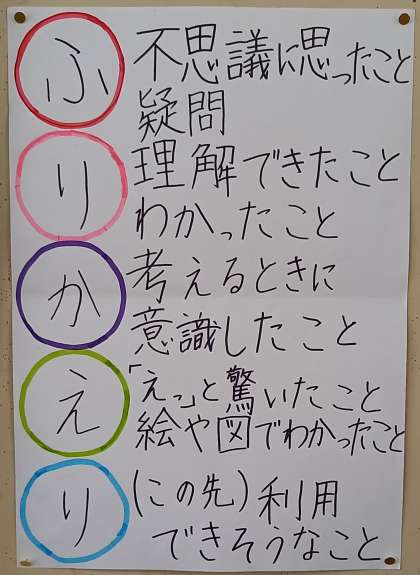 ふ 不思議に思ったこと
疑問
り 理解できたこと
わかったこと
か 考えるときに
意識したこと
え 「えっ」と驚いたこと
絵や図でわかったこと
り (この先)利用
できそうなこと